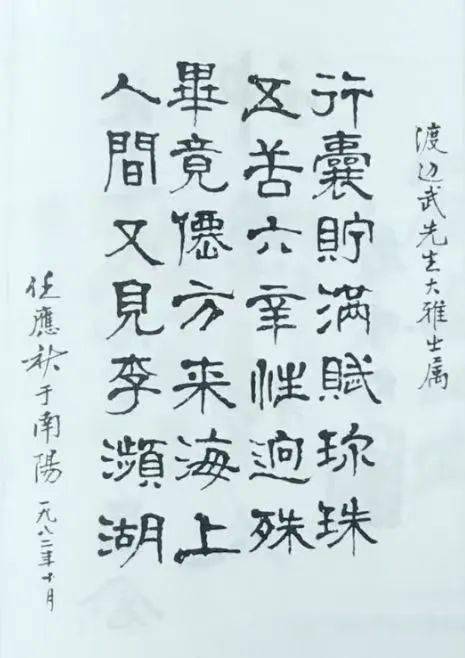 渡边武先生大雅士属
行囊貯滿賦珍珠
五苦六辛性迥殊
畢竟僊方来海上
人間又見李瀕湖
任應秋于南陽
一九八二年十月